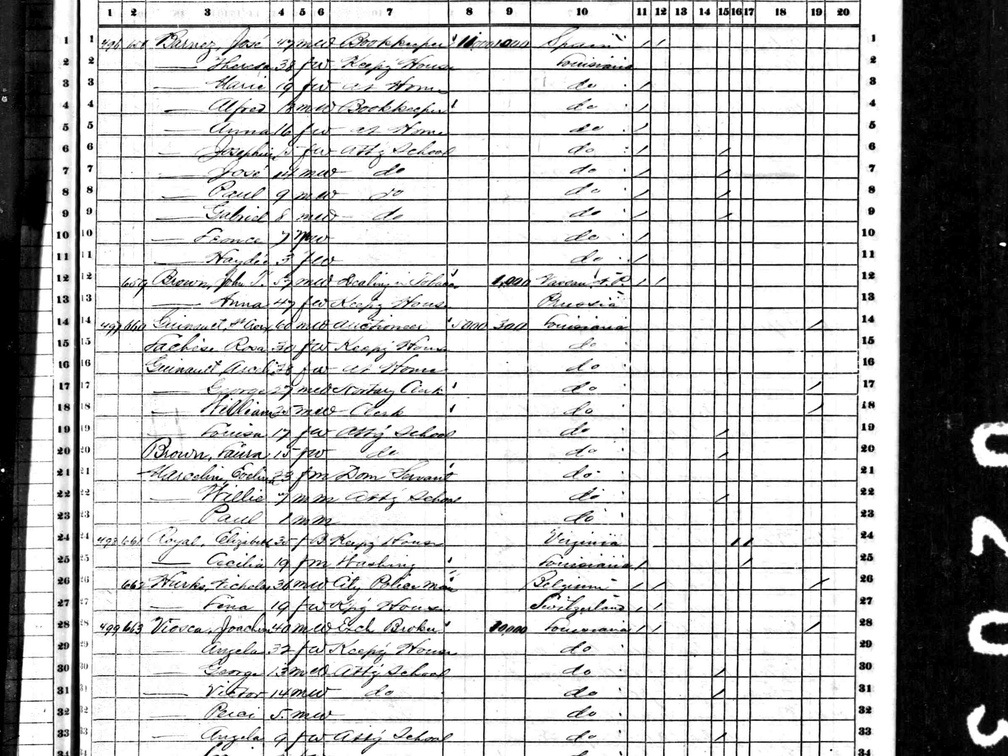 1 2 3 4 5 6 7 8 9 10 11 12 13 14 15 16 17 18 19 20
1 1 496 658 Barnez, José 47 m W Bookkeeper 1000 Spain / / 1
2 2 — Theresa 38 f W Keepg House Louisiana 2
3 3 — Marie 19 f W at Home do / 3
4 4 — Alfred 18 m W Bookkeeper do / 4
5 5 — Anna 16 f W at Home do / 5
6 6 — Josephine 15 f W Attg School do / / 6
7 7 — José m W do do / / 7
8 8 — Paul 9 m W do do / / 8
9 9 — Gabriel 8 m W do do / / 9
10 10 — 7 W do / 10
11 11 — Haydée 3 f W do / 11
12 12 659 Brown, John T. 57 m W Dealing in Tobacco 1,000 Nassau / / 12
13 13 — Anna 47 f W Keepg House Prussia 13
14 14 497 660 Guinault, 60 m W Auctioneer 5000 300 Louisiana / 14
15 15 Rosa 30 f W Keepg House do 15
16 16 Guinault, 28 f W at Home do 16
17 17 — George 27 m W Notary Clerk do / 17
18 18 — William 25 m W Clerk do / 18
19 19 — Louisa 17 f W Attg School do / 19
20 20 Brown, Laura 15 f W do do / 20
21 21 Marcelin, 23 f m Dom Servant do 21
22 22 — Willie 7 m m Attg School do / 22
23 23 — Paul 1 m m do 23
24 24 498 661 Royal, Elizabeth 35 f B Keepg House Virginia / / 24
25 25 — Cecilia 19 f m Washing Louisiana / / 25
26 26 662 Hurks, Nicholas 36 m W City Police Man Belgium / / / 26
27 27 — Lena 19 f W Kpg House Switzerland / / 27
28 28 499 663 Viosca, Joachim 40 m W Exch Broker 10,000 Louisiana / / / 28
29 29 — Angela 32 f W Keepg House do 29
30 30 — George 13 m W Attg School do / 30
31 31 — Victor 14 m W do do / 31
32 32 — 5 m W do 32
33 33 — Angela 9 f W Attg School do / 33
34 34